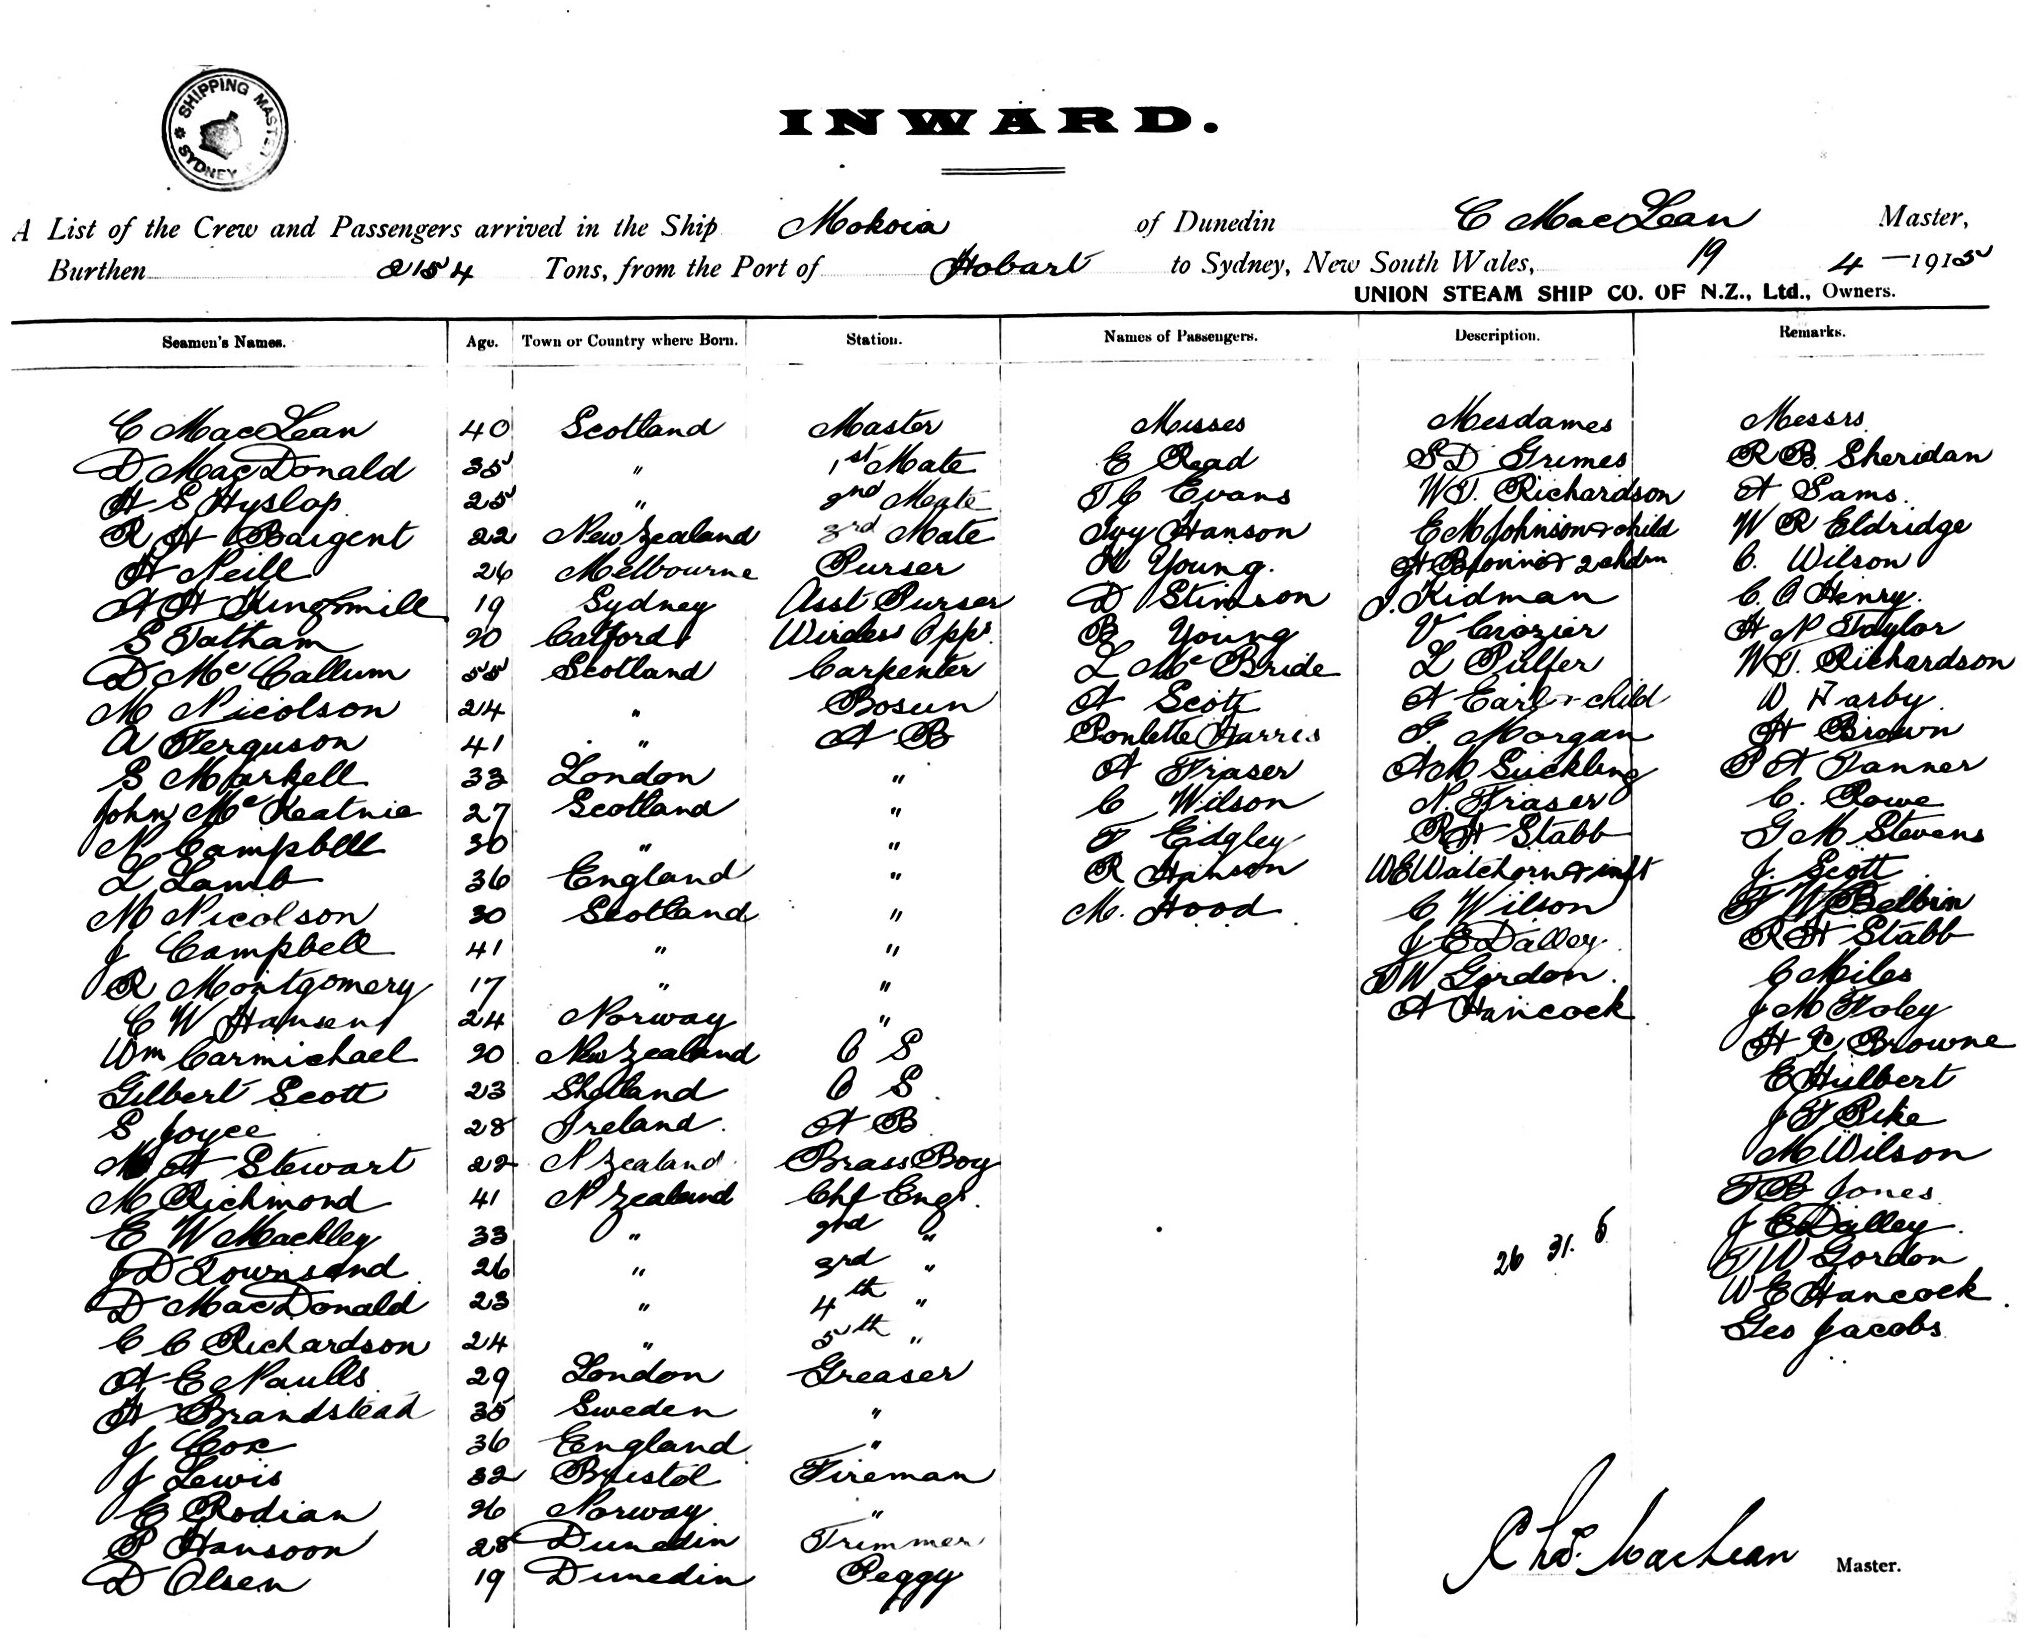 SHIPPING MASTER
SYDNEY
INWARD.
A List of the Crew and Passengers arrived in the Ship Mokoia of Dunedin C MacLean Master,
Burthen 2154 Tons, from the Port of Hobart to Sydney, New South Wales, 19 4 -1915
UNION STEAM SHIP CO. OF N.Z., Ltd., Owners.
Seamen's Names. Age. Town or Country where Born. Station. Names of Passengers. Description. Remarks.
C MacLean 40 Scotland Master Misses Mesdames Messrs
D MacDonald 35 " 1st Mate E Read S D Grimes R B Sheridan
H S Hyslop 25 " 2nd Mate T C Evans W T. Richardson A Sams.
R H Bargent 22 New Zealand 3rd Mate Ivy Hanson E M Johnson & child W R Eldridge
H Neill 26 Melbourne Purser K Young. H & 2 chdrn C. Wilson
A H Kingsmill 19 Sydney Asst Purser D Stimson J. Kidman C. C Henry.
S Tatham 20 Catford Wireless Oppr B Young V Crozier H N Taylor
D McCallum 55 Scotland Carpenter L McBride L Pulfer W T. Richardson
M Nicolson 24 " Bosun A Scott A Earl & child D Farby
A Ferguson 41 " A B Poulette Harris T. Morgan H Brown
S Markell 33 London " A Fraser A M Suckling P A Tanner
John McKeatnie 27 Scotland " C Wilson N. Fraser C. Rowe
N Campbell 30 " " F Eidgley R H Stabb G M Stevens
L Lamb 36 England " R Hanson W E Watchorn & inft J. Scott
M Nicolson 30 Scotland " M. Hood C Wilson F W Belbin
J Campbell 41 " " J E Dalley R H Stabb
R Montgomery 17 " " T W Gordon. C Miles
C W Hansen 24 Norway " A Hancock J M Foley
Wm Carmichael 20 New Zealand O S H C Browne
Gilbert Scott 23 Shetland O S E Hulbert
S Joyce 28 Ireland. A B J T Pike
M A Stewart 22 N Zealand Brass Boy M Wilson
M Richmond 41 N Zealand Chf Engr. T B Jones
E W Mackley 33 " 2nd " 26 31. 6 J E Dalley
J D Townsend 26 " 3rd " T W Gordon
D MacDonald 23 " 4th " W E Hancock
C C Richardson 24 " 5th " Geo Jacobs
A E Naulls 29 London Greaser
H Brandstead 35 Sweden "
J Cox 36 England "
J Lewis 32 Bristol Fireman
C Rodian 26 Norway "
P Hansoon 28 Dunedin Trimmer
D Olsen 19 Dunedin Peggy
Chas. MacLean Master.